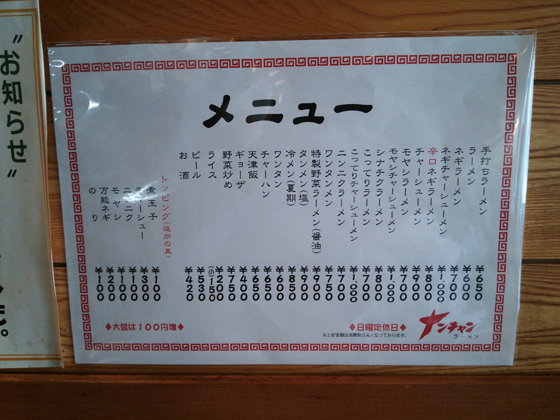 "お知らせ"
メニュー
手打ちラーメン ¥650
ラーメン ¥600
ネギラーメン ¥700
ネギチャーシューメン ¥1,000
辛口ネギラーメン ¥800
チャーシューメン ¥900
モヤシラーメン ¥700
モヤシチャーシューメン ¥1,000
シナチクラーメン ¥800
こってりラーメン ¥700
こってりチャーシューメン ¥1,000
ニンニクラーメン ¥700
ワンタンメン ¥750
特製野菜ラーメン(醤油)
タンメン(塩)
冷メン(夏期)
ワンタン
チャーハン
天津飯 ¥650
ギョーザ ¥400
野菜炒め ¥700
ライス ¥200 (小)150
ビール ¥530
お酒 ¥420
トッピング(追加の具)
玉子
シュー
モヤシ ¥100
万能ネギ ¥200
のり ¥100
◆大盛は100円増◆
◆日曜定休日◆
ナンチャン
ラーメン